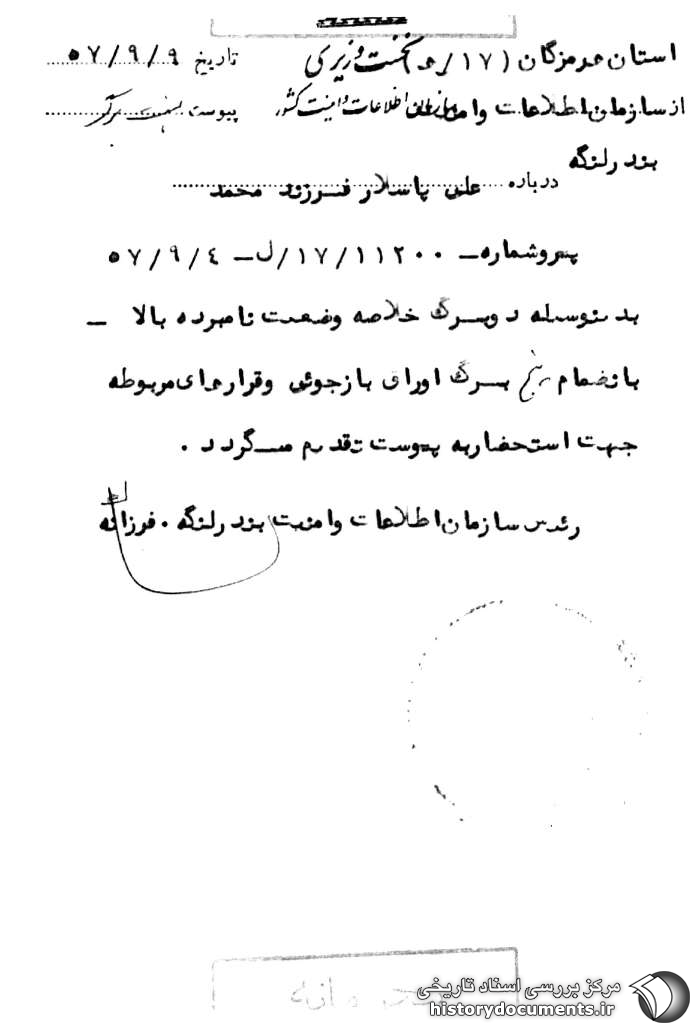 استان هرمزگان (۱۷/ه) نخست وزیری تاریخ ۵۷/۹/۹
از سازمان اطلاعات و امنیت سازمان اطلاعات و امنیت کشور پیوست هفت برگ
بندرلنگه
درباره علی پاسلار فرزند محمد
پیروشماره ـ ۱۷/۱۱۲۰۰/ل ـ ۵۷/۹/۴
بدینوسیله دوبرگ خلاصه وضعیت نامبرده بالا ـ
بانضمام پنج برگ اوراق بازجوئی وقرارهای مربوطه
جهت استحضاربه پیوست تقدیم میگردد .
رئیس سازمان اطلاعات وامنیت بندرلنگه . فرزانه
محرمانه
مرکز بررسی اسناد تاریخی
historydocuments.ir